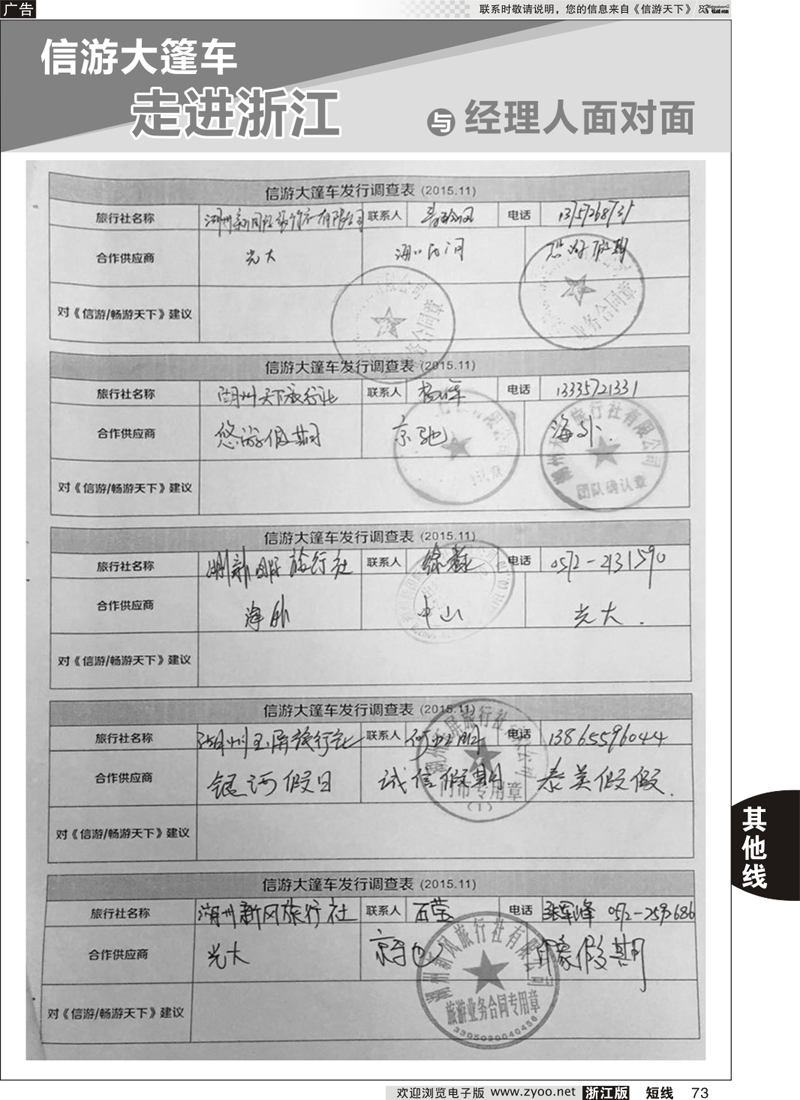 广告
联系时敬请说明，您的信息来自《信游天下》
信游大篷车
走进浙江 与 经理人面对面
信游大篷车发行调查表 (2015.11)
旅行社名称 联系人 电话
合作供应商 光大
对《信游/畅游天下》建议
信游大篷车发行调查表 (2015.11)
旅行社名称 湖州天下旅行社 联系人 电话 13335721331
合作供应商 悠游假期 京驰 海外.
对《信游/畅游天下》建议
团队确认章
信游大篷车发行调查表 (2015.11)
旅行社名称 旅行社 联系人 电话 0572-2131590
合作供应商 海外 中山 光大.
对《信游/畅游天下》建议
信游大篷车发行调查表 (2015.11)
旅行社名称 湖州玉屏旅行社 联系人 电话 13865596044
合作供应商 银河假日 诚信假期 泰美假假.
门市专用章
(1)
对《信游/畅游天下》建议
信游大篷车发行调查表 (2015.11)
旅行社名称 湖州新风旅行社 联系人 石莹 电话 0572-2593686
合作供应商 光大 假期
湖州新风旅行社有限公司
旅游业务合同专用章
对《信游/畅游天下》建议
其他线
欢迎浏览电子版 www.zyoo.net 浙江版 短线 73